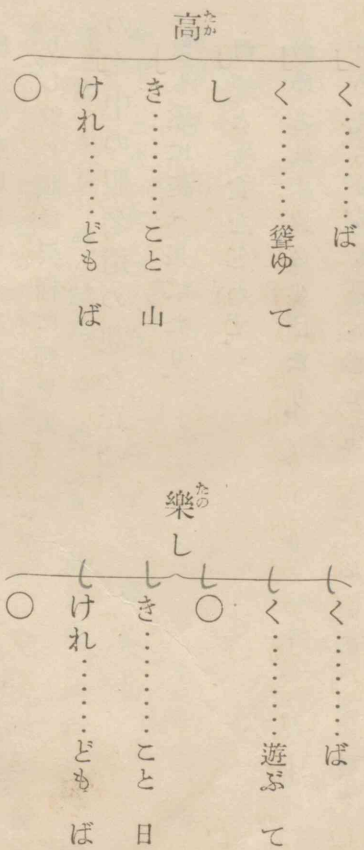 高たか
く………ば
く………聳ゆ て
し
き………こと 山
けれ………ども ば
○
樂たのし
しく………ば
しく………遊ぶ て
し○
しき………こと 日
しけれ………ども ば
○